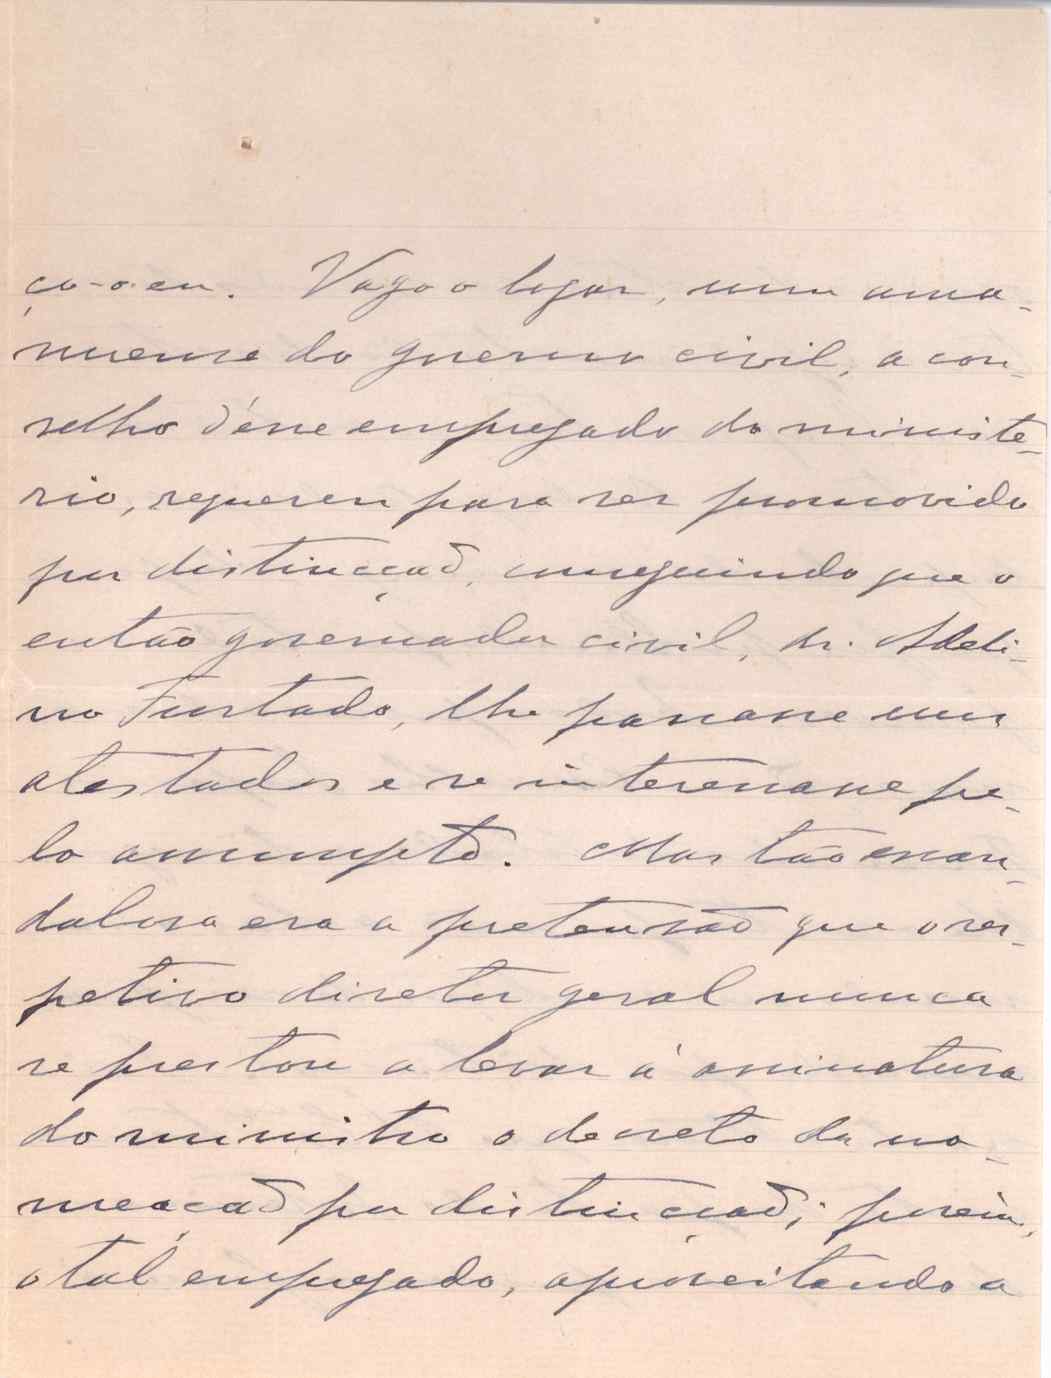 ço-o eu. Vago o logar, um ama-
nuense do governo civil, a con-
selho d'esse empregado do ministe-
rio, requereu para ser promovido
por distincção, conseguindo que o
então governador civil, dr. Adeli-
no Furtado, lhe passasse uns
atestados e se interessasse pe-
lo assumpto. Mas tão escan-
dalosa era a pretensão que o res-
petivo diretor geral nunca
se prestou a levar á assinatura
do ministro o decreto da no-
meação por distincção; porém,
o tal empregado, aproveitando a